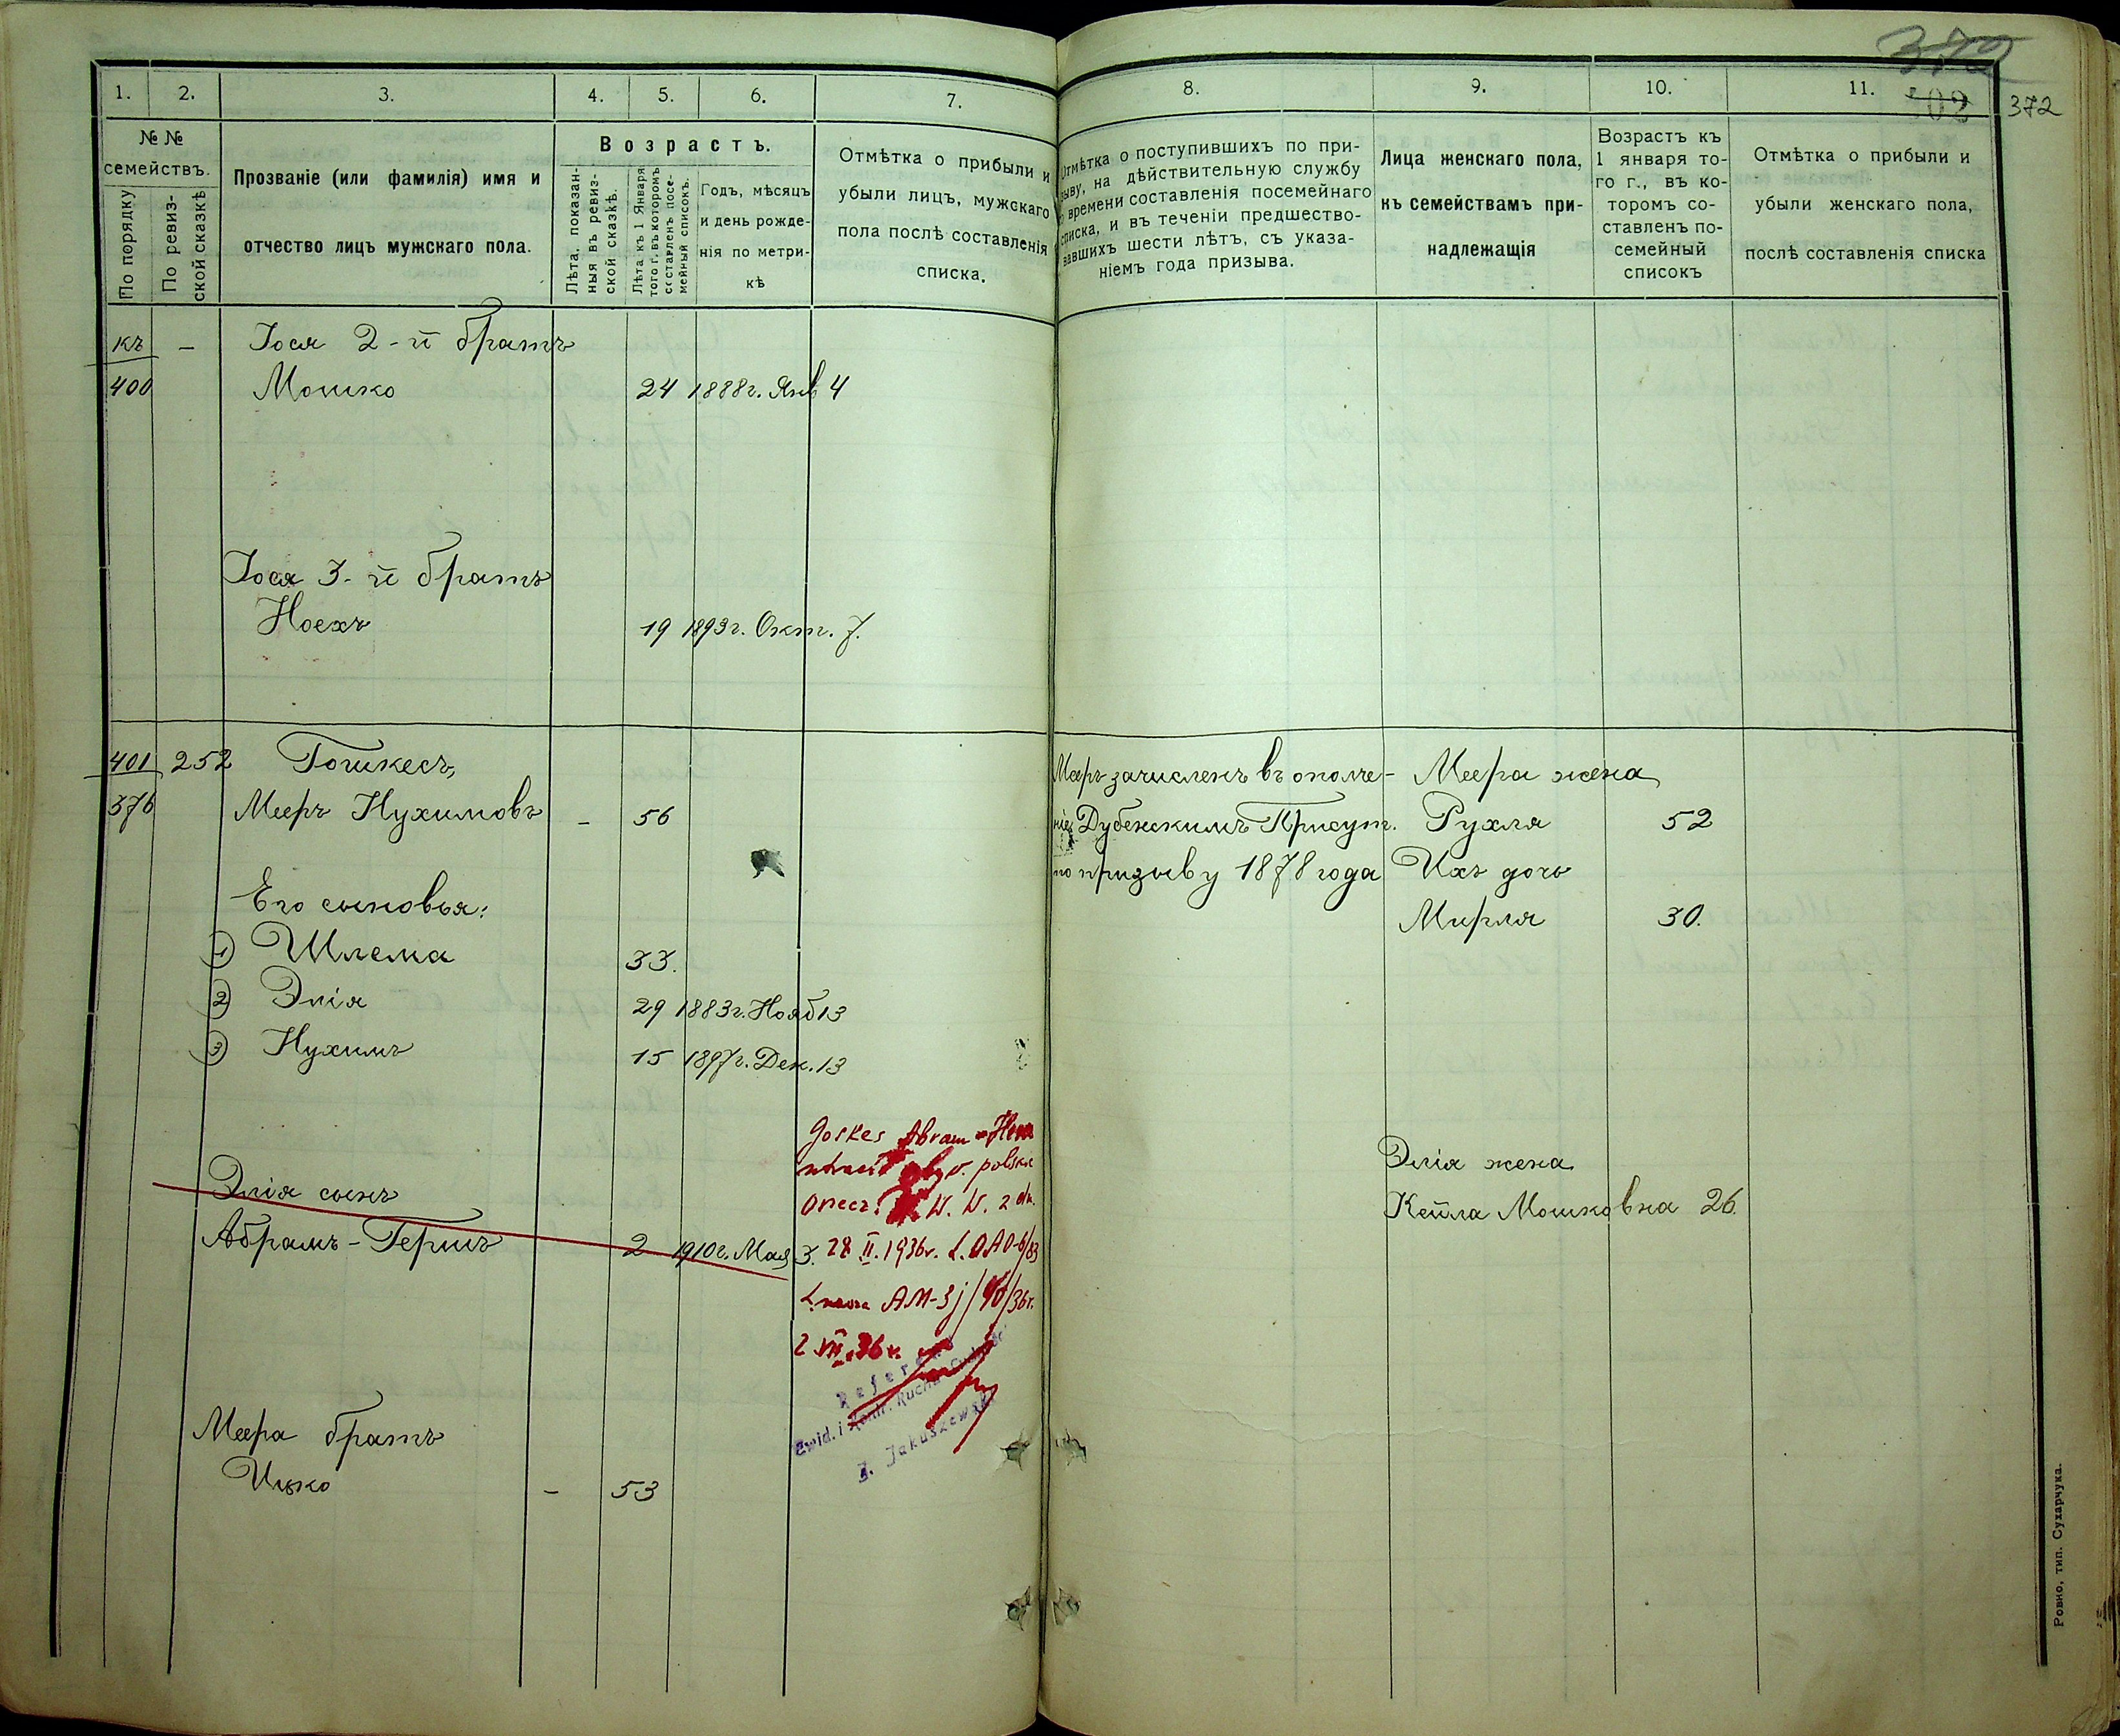 372
1.
2.
3.
4.
5.
6.
7.
№ №
семействъ.
По порядку
По ревиз-
ской сказкѣ
Прозваніе (или фамилія) имя и
отчество лицъ мужскаго пола.
Возрастъ.
Лѣта, показан-
ныя въ ревиз-
ской сказкѣ.
Лѣта къ 1 Января
того г. въ которомъ
составленъ посе-
мейный списокъ.
Годъ, мѣсяцъ
и день рожде-
нія по метри-
кѣ
Отмѣтка о прибыли и
убыли лицъ, мужскаго
пола послѣ составленія
списка.
къ — Іося 2-й братъ
400 Мошко 24 1888г. Янв 4
Іося 3-й братъ
Ноехъ 19 1893г. Окт. 7.
401 252 Гошкесъ,
376 Мееръ Нухимовъ – 56
Его сыновья:
1 Шлема 33.
2 Элія 29 1883г. Нояб 13
3 Нухимъ 15 1897г. Дек. 13
Элія сынъ
Абрамъ-Гершъ 2 1910г. Мая 3.
Goskes Abram
polskie
orzecz. W. W. z dn.
28 II. 1936r.
2 VII. 36r.
Referent
Ewid. i Kontr. Ruchu Ludności
J. Jakuszewski
Меера братъ
Ицко – 53
8.
9.
10.
11.
372
Отмѣтка о поступившихъ по при-
зыву, на дѣйствительную службу
времени составленія посемейнаго
списка, и въ теченіи предшество-
вавшихъ шести лѣтъ, съ указа-
ніемъ года призыва.
Лица женскаго пола,
къ семействамъ при-
надлежащія
Возрастъ къ
1 января то-
го г., въ ко-
торомъ со-
ставленъ по-
семейный
списокъ
Отмѣтка о прибыли и
убыли женскаго пола,
послѣ составленія списка
Мееръ зачисленъ въ ополче- Меера жена
ніе Дубенскимъ Присут. Рухля 52
по призыву 1878 года Ихъ дочь
Мирля 30.
Элія жена
Кейла Мошковна 26.
Ровно, тип. Сухарчука.